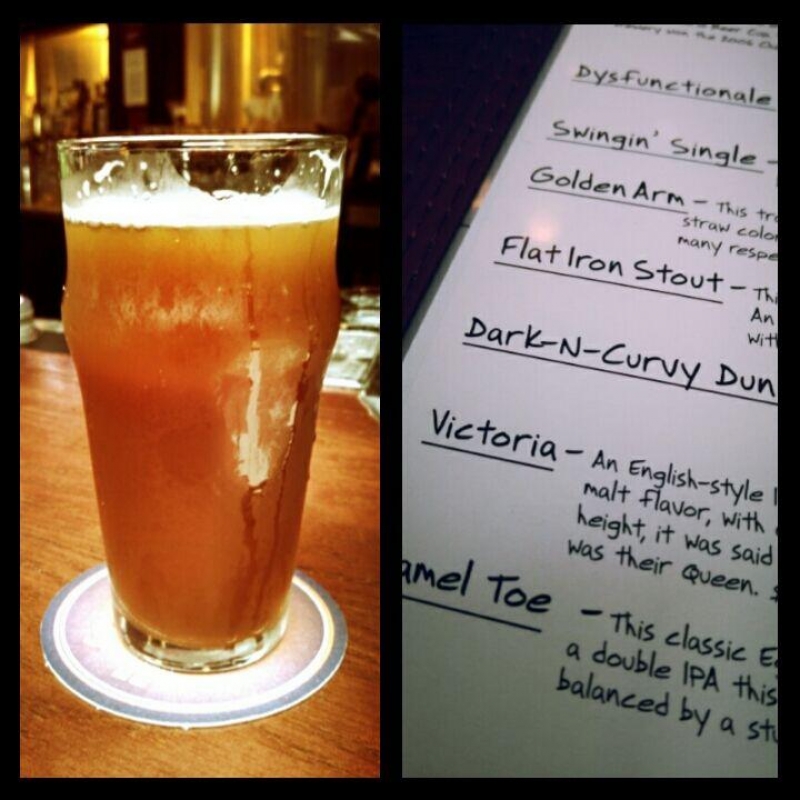 Dysfunctionale
Swingin' Single -
Golden Arm - This
straw
many
Flat Iron Stout -
An
Dark-N-Curvy
Victoria - An English-style
malt flavor, with
height, it was said
was their Queen.
Toe - This classic
a double IPA this
balanced by a